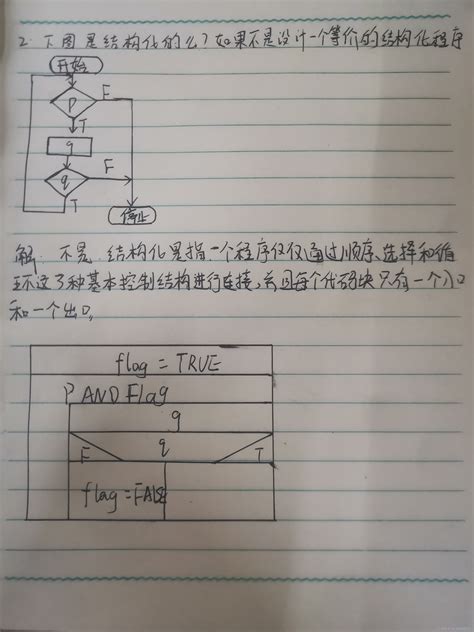 2. 下图是结构化的么?如果不是设计一个等价的结构化程序
开始
P
F
T
g
q
F
T
停止
解: 不是. 结构化是指一个程序仅仅通过顺序、选择和循
环这了种基本控制结构进行连接,并且每个代码块只有一个入口
和一个出口。
flag = TRUE
P AND Flag
g
F
q
T
flag = FALSE